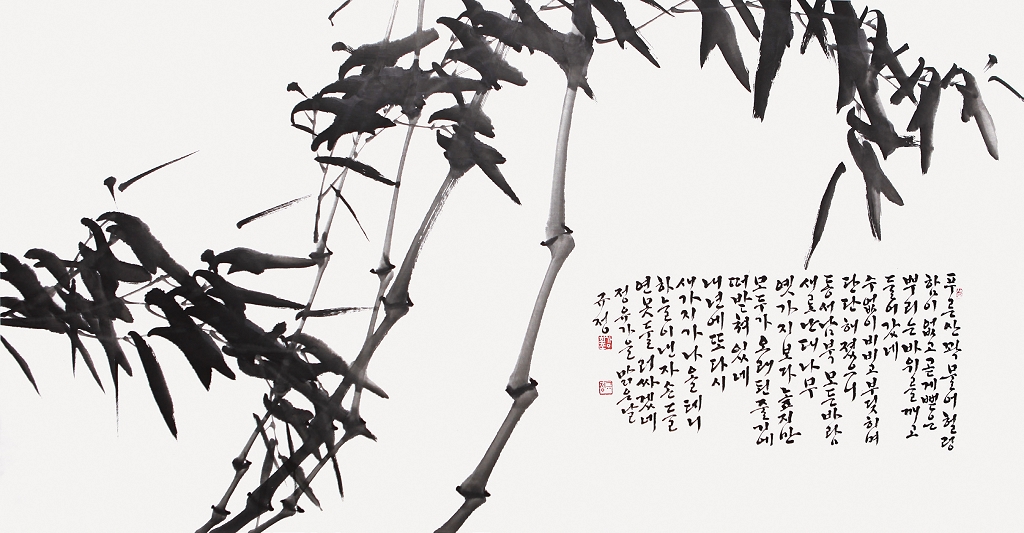 푸른산 꽉 물어 헐렁
함이 없고 곧게 뻗은
뿌리는 바위를 깨고
들어갔네
수없이 비비고 부딪히며
단단허졌으니
동서남북 모든 바람
새로난 대나무
옛가지보다 높지만
모두가 오래된 줄기에
떠받혀 있네
내년에 또다시
새가지가 나올테니
하늘이 낸 자손들
연못 둘러싸겠네
정유가을 맑은날